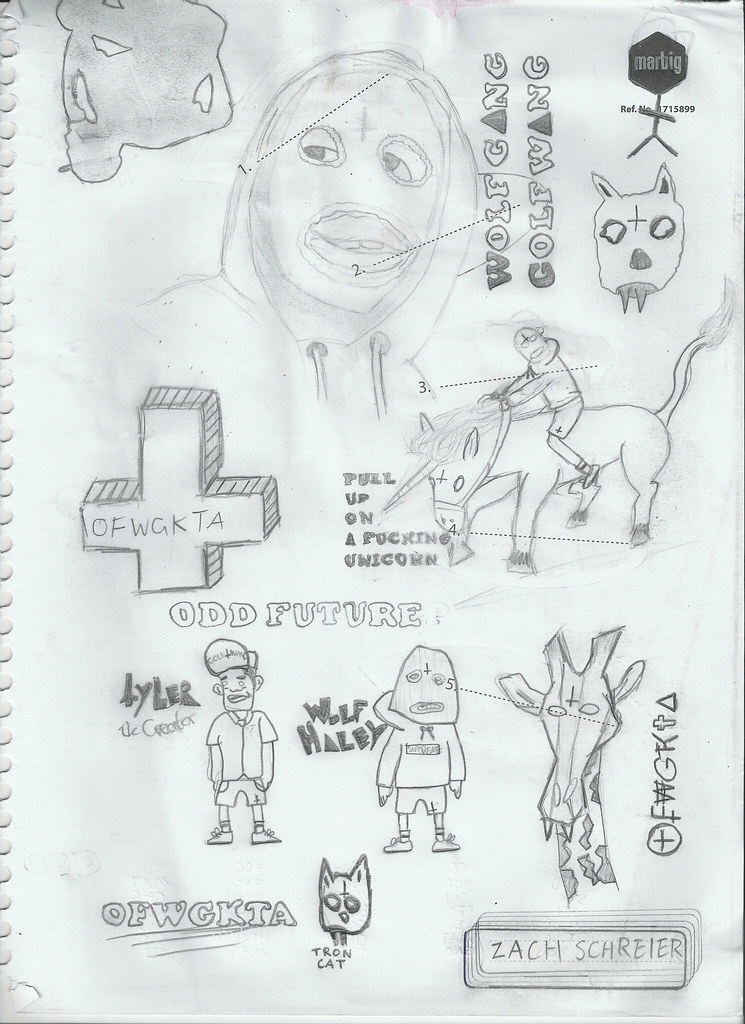 marbig
Ref. No. 1715899
WOLFGANG
GOLFWANG
1.
2.
3.
PULL
UP
ON
A FUCKING
UNICORN
4.
OFWGKTA
ODD FUTURE
TYLER
the Creator
WOLF
HALEY
5.
SUPREME
OFWGKTA
OFWGKTA
TRON
CAT
ZACH SCHREIER